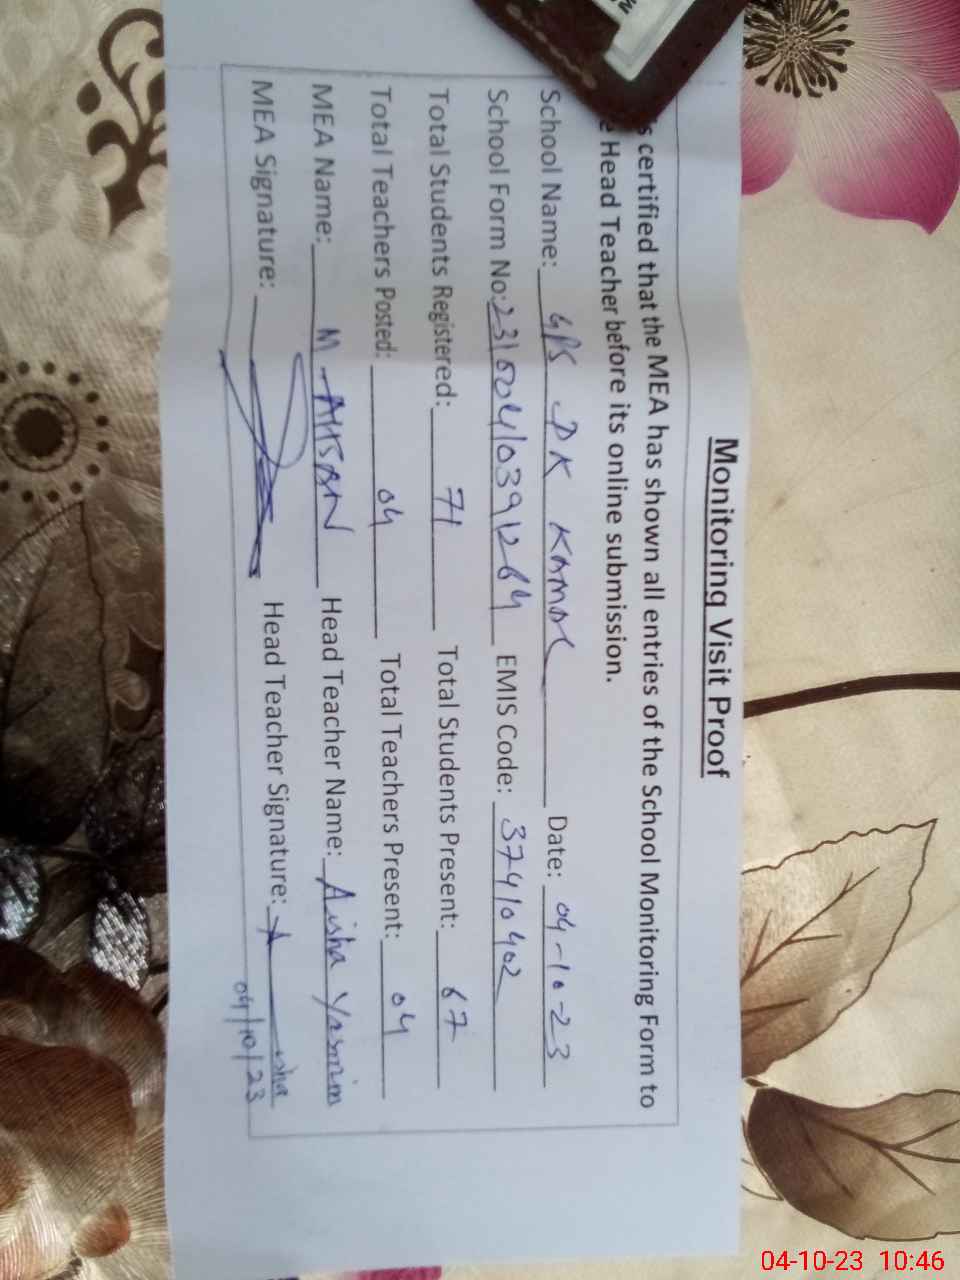 Monitoring Visit Proof
s certified that the MEA has shown all entries of the School Monitoring Form to
e Head Teacher before its online submission.
School Name: GPS DK Kamal Date: 04-10-23
School Form No: EMIS Code: 37410402
Total Students Registered: 71 Total Students Present: 67
Total Teachers Posted: 04 Total Teachers Present: 04
MEA Name: M. AHSAN Head Teacher Name: Aisha Yasmim
MEA Signature: Head Teacher Signature:
04/10/23
04-10-23 10:46